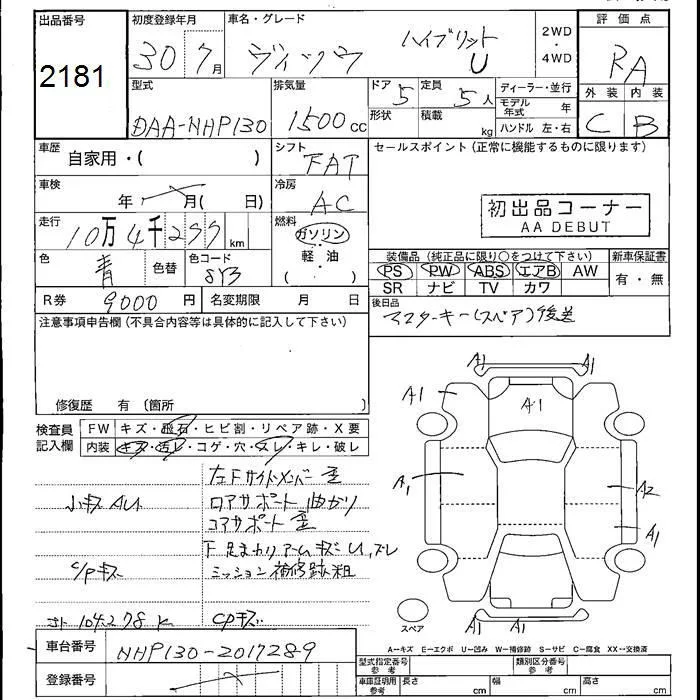 出品番号
2181
初度登録年月
30 7月
車名・グレード
ヴィッツ ハイブリット U
2WD・4WD
評価点
RA
外装 内装
C B
型式
DAA-NHP130
排気量
1500 cc
ドア 5
形状
定員 5人
積載 kg
ディーラー・並行
モデル年式 年
ハンドル 左・右
車歴
自家用・( )
シフト
FAT
車検
年 月( 日)
冷房
AC
走行
10万4千277 km
燃料
ガソリン
軽・油
( )
色
青
色替
色コード
8Y3
R券 9000 円
名変期限 月 日
セールスポイント(正常に機能するものに限ります)
初出品コーナー
AA DEBUT
装備品(純正品に限り○をつけて下さい)
PS PW ABS エアB AW
SR ナビ TV カワ
新車保証書
有・無
後日品
マスターキー(スペア)後送
注意事項申告欄(不具合内容等は具体的に記入して下さい)
修復歴 有 〔箇所 〕
検査員記入欄
FW キズ・飛石・ヒビ割・リペア跡・X要
内装 キズ・汚レ・コゲ・穴・スレ・キレ・破レ
左Fサイドメンバー歪
小キズAU
ロアサポート曲がり
コアサポート歪
下足まわりアームキズU,ズレ
C/Pキズ
ミッション補修跡粗
104278K
CPキズ
A1 A1
A1
A1
A1
A2
A1
A1 A1
スペア
A-キズ E-エクボ U-凹み W-補修跡 S-サビ C-腐食 XX-交換済
車台番号
NHP130-2017289
登録番号
型式指定番号 参考
類別区分番号 参考
車庫証明用 参考
長さ cm
幅 cm
高さ cm